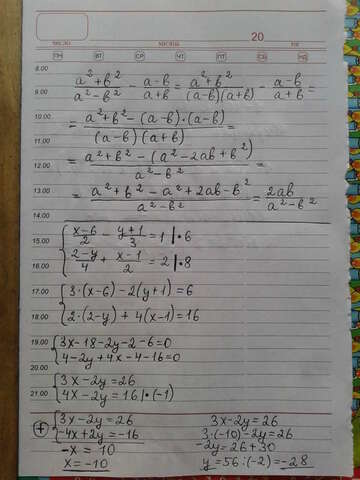 20
ЧИСЛО МЕСЯЦ ГОД
ПН ВТ СР ЧТ ПТ СБ ВС
8.00
9.00 (a²+b²)/(a²-b²) - (a-b)/(a+b) = (a²+b²)/((a-b)(a+b)) - (a-b)/(a+b) =
10.00
= (a²+b²-(a-b)·(a-b))/((a-b)(a+b)) =
11.00
12.00 = (a²+b²-(a²-2ab+b²))/(a²-b²) =
13.00 = (a²+b²-a²+2ab-b²)/(a²-b²) = 2ab/(a²-b²)
14.00
15.00 { (x-6)/2 - (y+1)/3 = 1 |·6
16.00 (2-y)/4 + (x-1)/2 = 2 |·8
17.00 { 3·(x-6)-2(y+1)=6
18.00 2·(2-y)+4(x-1)=16
19.00 { 3x-18-2y-2-6=0
4-2y+4x-4-16=0
20.00
{ 3x-2y=26
21.00 4x-2y=16 |·(-1)
+ { 3x-2y=26 3x-2y=26
-4x+2y=-16 3·(-10)-2y=26
-x=10 -2y=26+30
x=-10 y=56:(-2)=-28